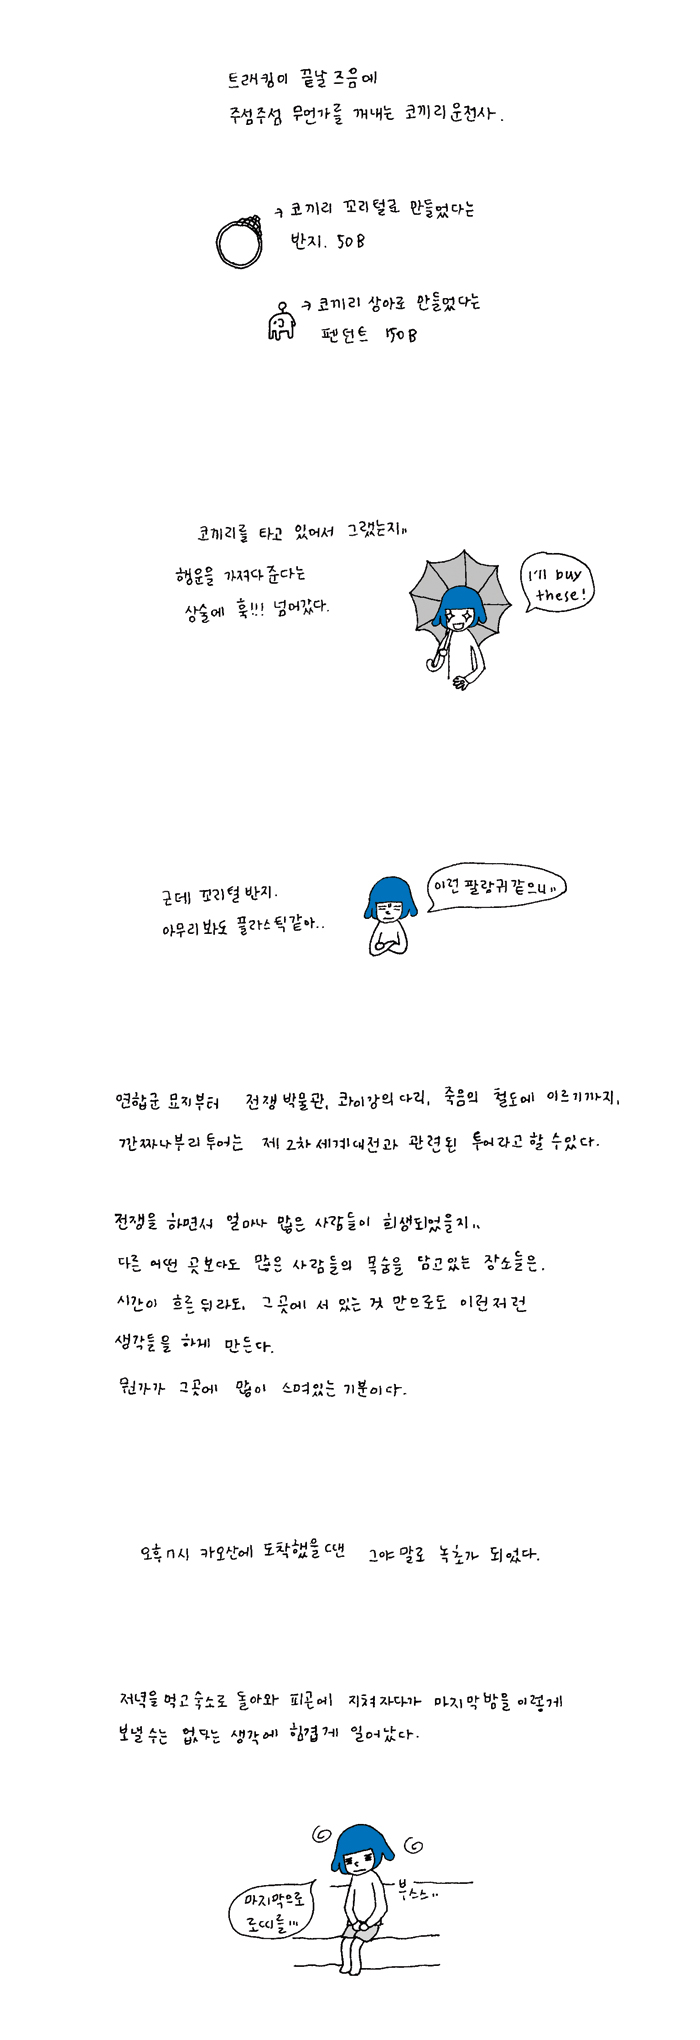 트래킹이 끝날 즈음에
주섬주섬 무언가를 꺼내는 코끼리 운전사.
→ 코끼리 꼬리털로 만들었다는
반지. 50B
→ 코끼리 상아로 만들었다는
펜던트 150B
코끼리를 타고 있어서 그랬는지"
행운을 가져다 준다는
상술에 훅!!! 넘어갔다.
I'll buy
these!
근데 꼬리털 반지.
아무리 봐도 플라스틱같아..
이런 팔랑귀 같으니"
연합군 묘지부터 전쟁 박물관, 콰이강의 다리, 죽음의 철도에 이르기까지,
깐짜나부리 투어는 제 2차 세계대전과 관련된 투어라고 할 수 있다.
전쟁을 하면서 얼마나 많은 사람들이 희생되었을지..
다른 어떤 곳보다도 많은 사람들의 목숨을 담고있는 장소들은.
시간이 흐른 뒤라도. 그곳에 서 있는 것 만으로도 이런저런
생각들을 하게 만든다.
뭔가가 그곳에 많이 스며있는 기분이다.
오후 7시 카오산에 도착했을 땐 그야말로 녹초가 되었다.
저녁을 먹고 숙소로 돌아와 피곤에 지쳐 자다가 마지막 밤을 이렇게
보낼 수는 없다는 생각에 힘겹게 일어났다.
마지막으로
로띠를!!!
부스스..